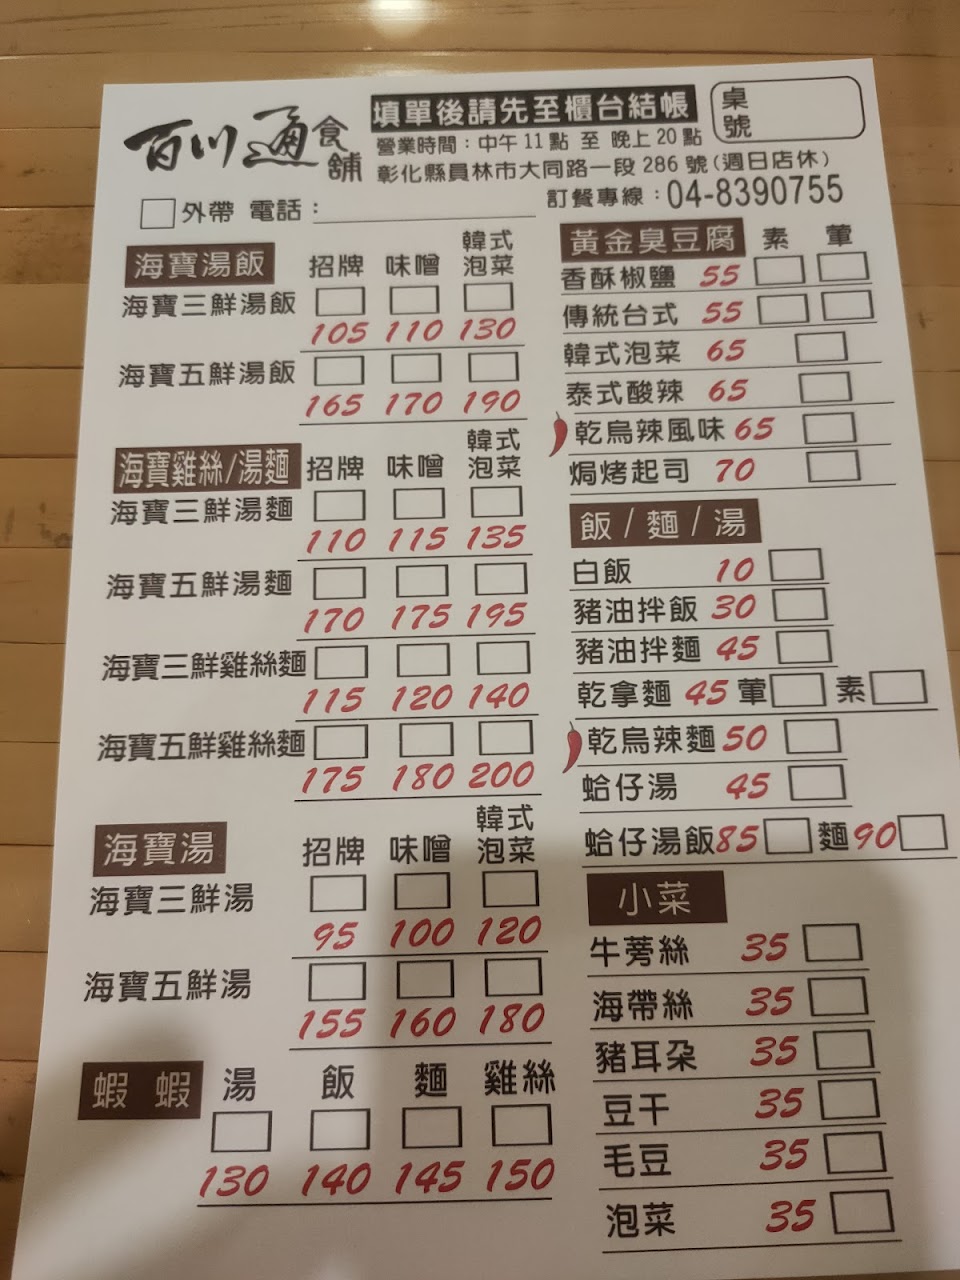 百川通食舖
填單後請先至櫃台結帳
桌號
營業時間：中午 11 點 至 晚上 20 點
彰化縣員林市大同路一段 286 號 (週日店休)
訂餐專線：04-8390755
外帶 電話：
海寶湯飯 招牌 味噌 韓式泡菜
海寶三鮮湯飯
105 110 130
海寶五鮮湯飯
165 170 190
海寶雞絲/湯麵 招牌 味噌 韓式泡菜
海寶三鮮湯麵
110 115 135
海寶五鮮湯麵
170 175 195
海寶三鮮雞絲麵
115 120 140
海寶五鮮雞絲麵
175 180 200
海寶湯 招牌 味噌 韓式泡菜
海寶三鮮湯
95 100 120
海寶五鮮湯
155 160 180
蝦 蝦 湯 飯 麵 雞絲
130 140 145 150
黃金臭豆腐 素 葷
香酥椒鹽 55
傳統台式 55
韓式泡菜 65
泰式酸辣 65
乾烏辣風味 65
焗烤起司 70
飯 / 麵 / 湯
白飯 10
豬油拌飯 30
豬油拌麵 45
乾拿麵 45 葷 素
乾烏辣麵 50
蛤仔湯 45
蛤仔湯飯 85 麵 90
小菜
牛蒡絲 35
海帶絲 35
豬耳朵 35
豆干 35
毛豆 35
泡菜 35